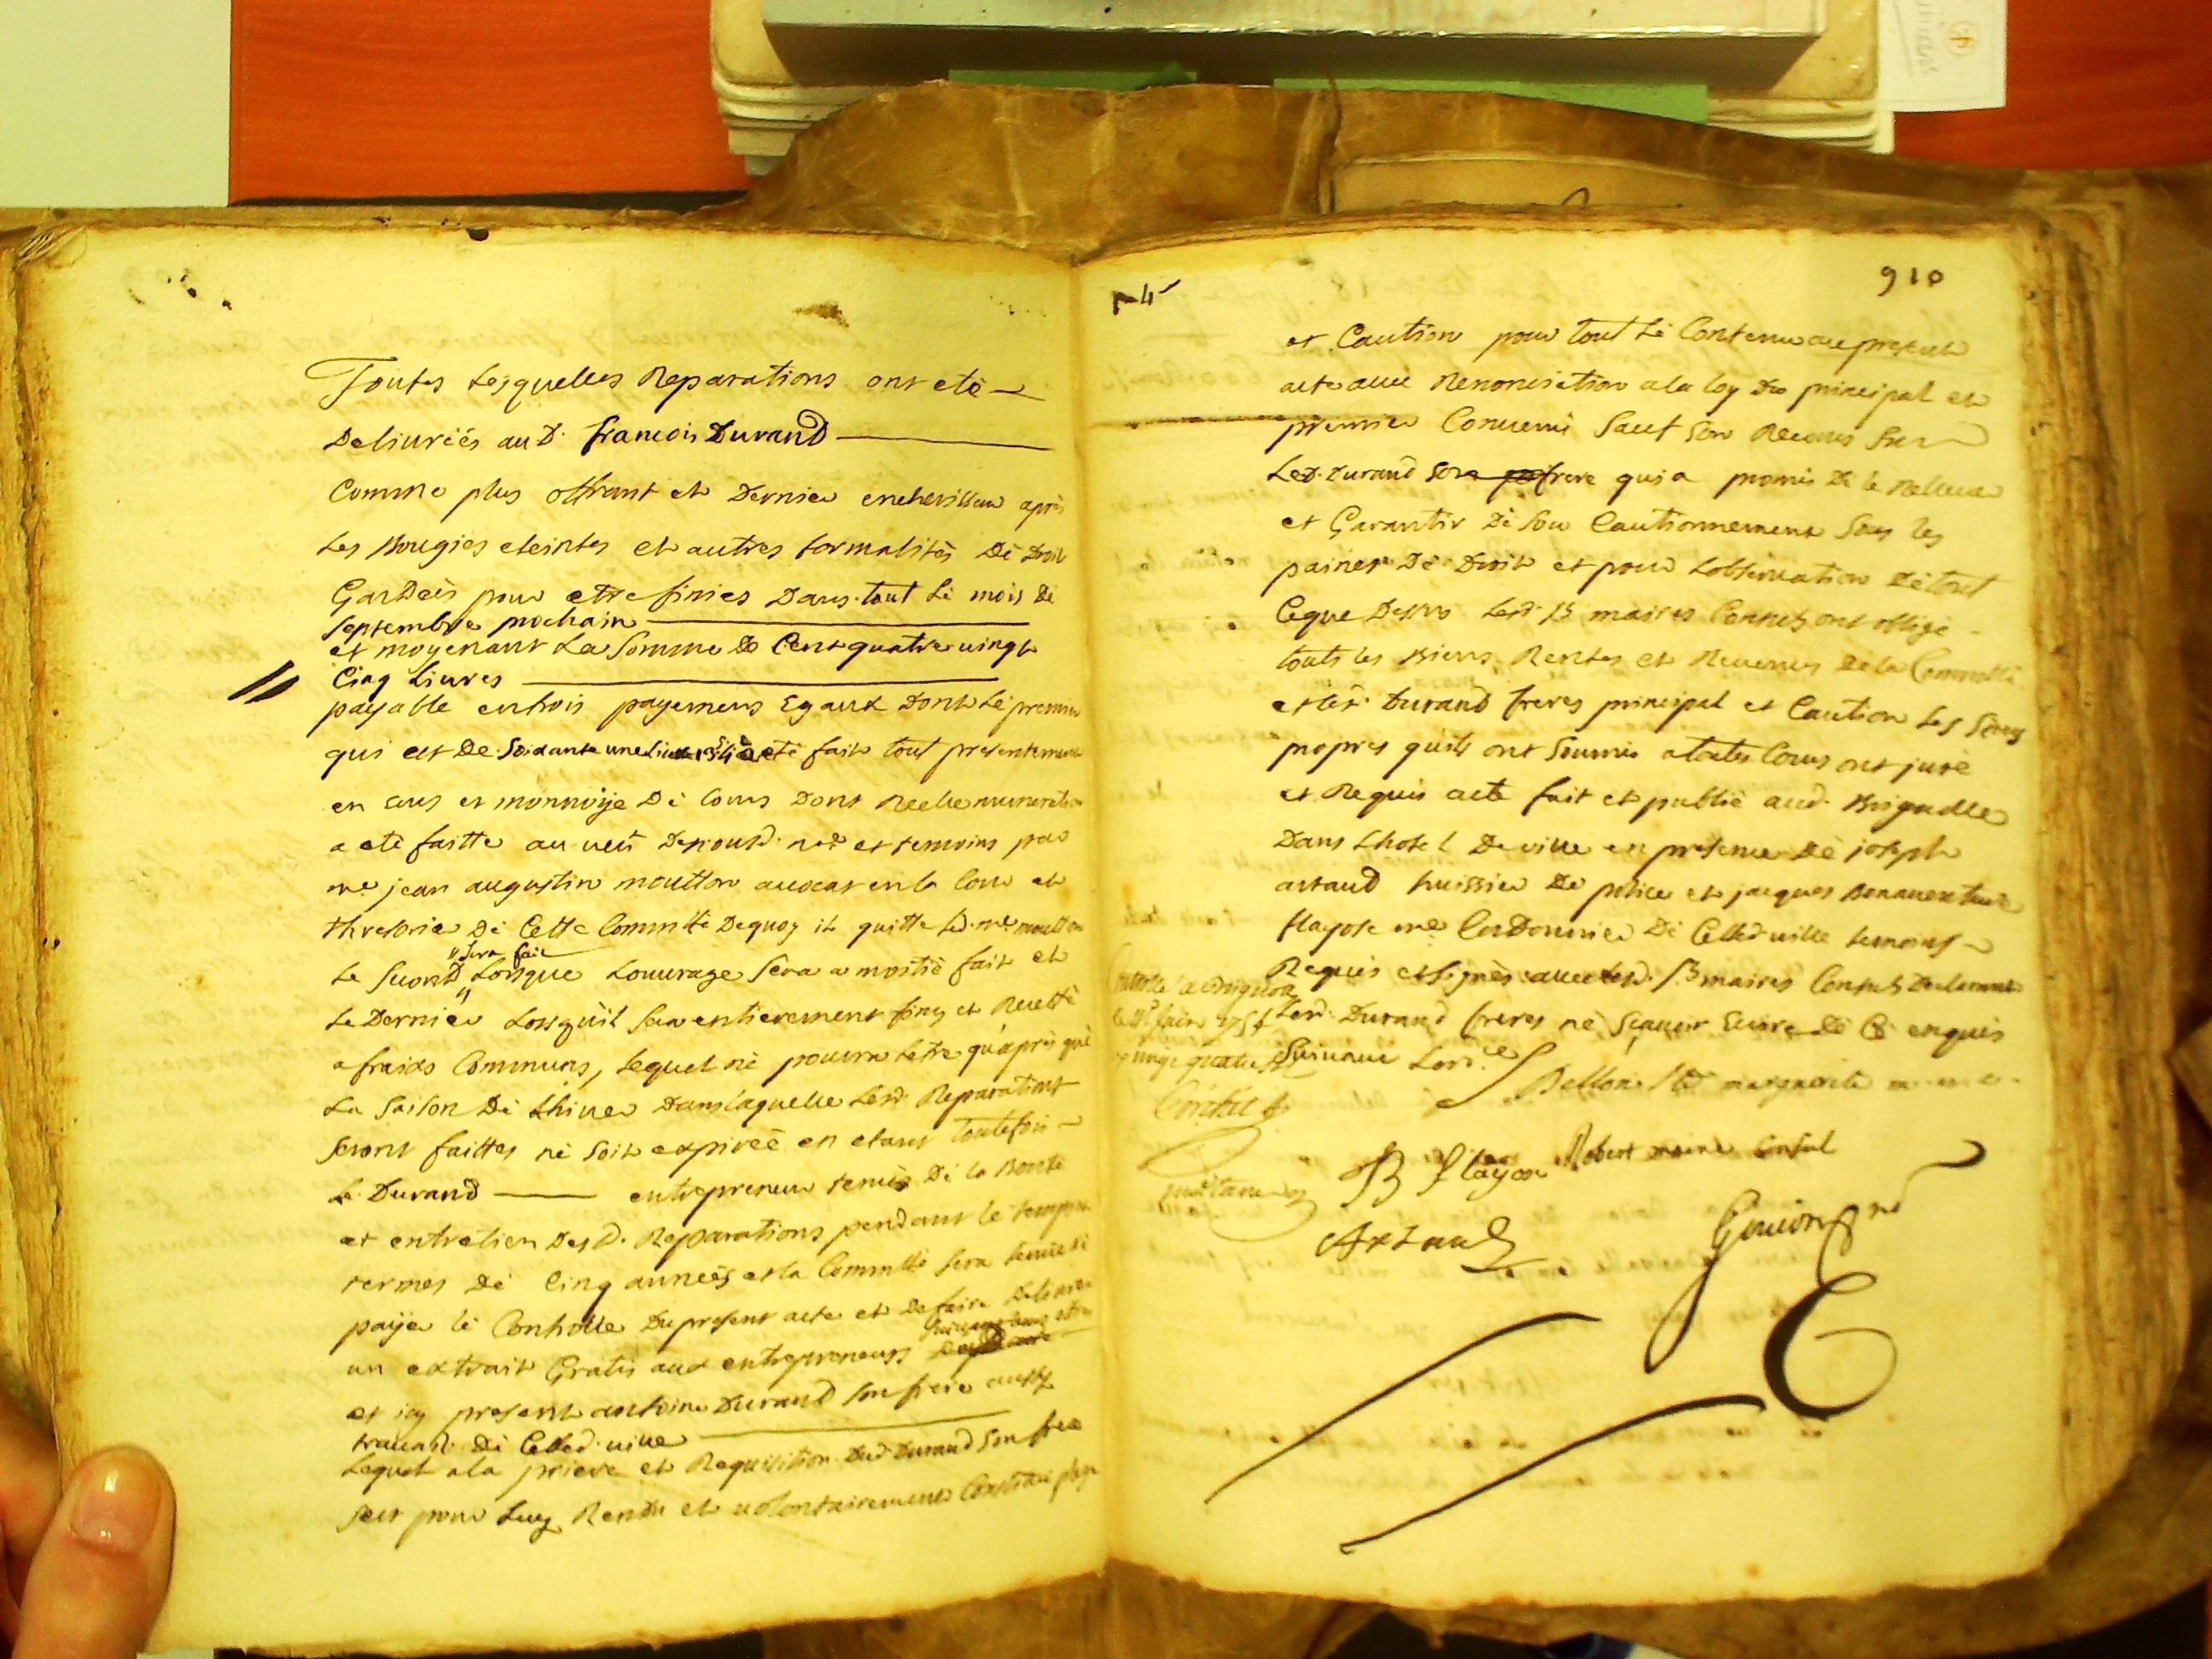 Toutes Lesquelles Reparations ont eté
Deliurées au d. francois Durand
Comme plus offrant et Dernier encherisseur après
Les Bougies eteintes et autres formalités Dé Droit
Gardeés pour etre finies Dans tout Lé mois Dé
septembre prochain
et moyenant La Somme De Cent quatre uingt
Cinq Liures
payable entrois payemens Egaux Dont Lé premier
qui est De Soixante une Liure a eté fait tout presentement
en ecus et monnoye Dé Cours Dont Reelle numeration
a eté faitte au ueü De nousd. nore et temoins par
me jean augustin moutton auocat en la Cour et
thresorier Dé Cette Commté Dequoy il quitte Led. me moutton
Le Second Lorsque Louurage Séra a moitié fait et
sera fait
Le Dernier Lorsquil Sera entierement finy et Recetté
a fraix Communs, Lequel né pourra Letre quaprés qué
La Saison Dé Lhiuer Dans laquelle Lesd. Reparations
seront faittes né soit expireé en etant toutefois
Le Durand entrepreneur tenu Dé la Bonté
et entretien Desd. Reparations pendant le temps et
termes Dé Cinq anneés et la Commté sera tenue de
payer lé Controlle Du present acte et De faire Deliurer
un extrait Gratis aux entrepreneurs
et icy present antoine Durand son frere aussy
trauailr. Dé Cetted. uille
Lequel a la priere et Requisition Dud. Durand Son frere
sest pour Luy Rendu et uolontairement Constitué plege
4
910
et Caution pour tout Lé Contenu au present
acte auec Renonciation a la loy Du principal et
premier Conuenu Sauf Son Recours Sur
Led. Durand Son frere qui a promis De le Releuer
et Garantir Dé Son Cautionnement Sous les
paines Dé Droit et pour Lobseruation Dé tout
Ceque Dessus Lesd. Srs maires Consuls ont obligé
touts les Biens Rentes et Reuenus Dé la Commté
et les. Durand freres principal et Caution Les Siens
propres quils ont Soumis a toutes Cours ont juré
et Requis acte fait et publié aud. Brignolle
Dans Lhotel De uille en presence Dé joseph
artaud huissier De police et jacques Bonauenture
flayose me Cordonnier Dé Cetted. uille temoins
Requis et signés auec lesd. Srs maires Consuls
Lesd. Durand freres né Sçauoir Ecrire Dé Cé enquis
Suiuant Lord.ce
Controllé a Brignole
Bellon
B flayose
Robert maire Consul
Artaud
Gouion nre